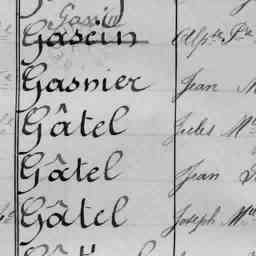 Gassin
Gascin Alp.te P.re
Gasnier Jean M
Gâtel Jules M
Gâtel Jean
Gâtel Joseph M